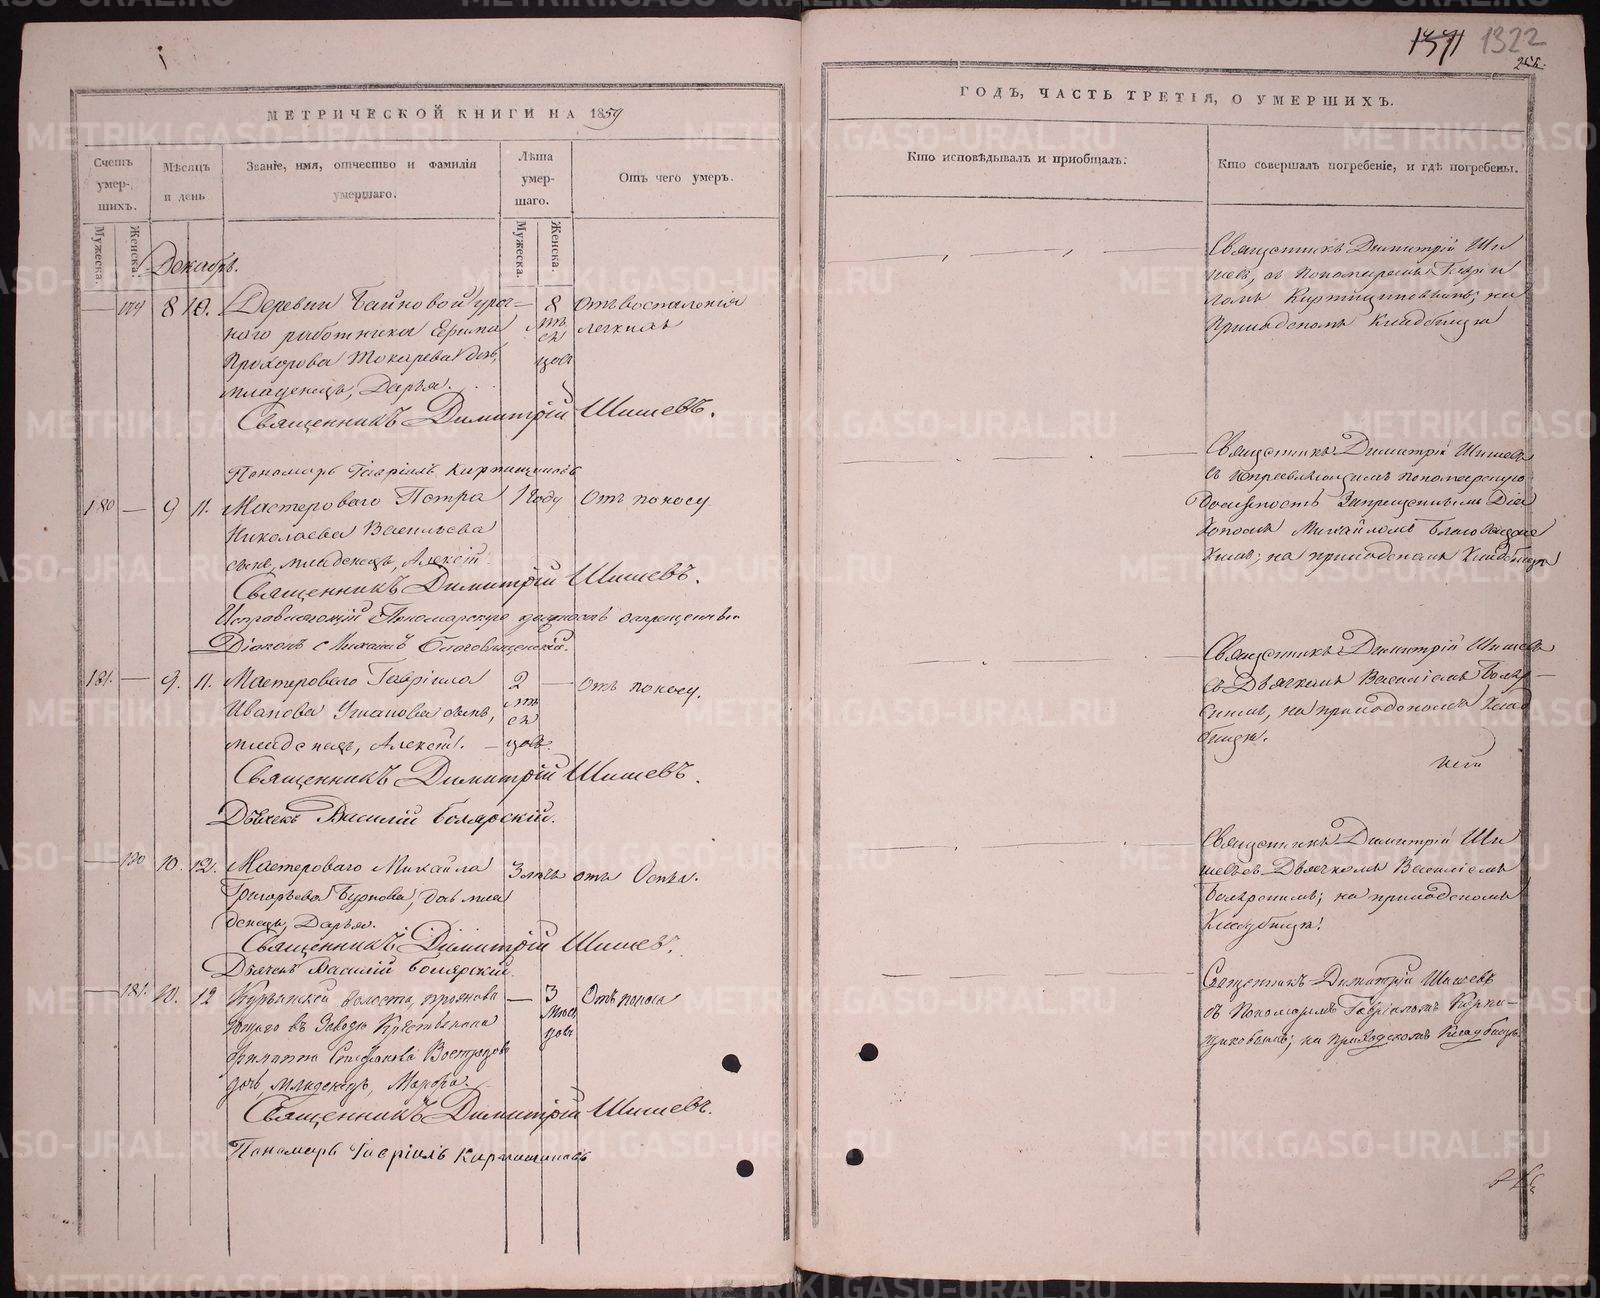 1371 1322
МЕТРИЧЕСКОЙ КНИГИ НА 1859
ГОДЪ, ЧАСТЬ ТРЕТІЯ, О УМЕРШИХЪ.
Счетъ умер-шихъ.
Мужеска.
Женска.
Мѣсяцъ и день
Званіе, имя, отчество и фамилія умершаго.
Лѣта умер-шаго.
Мужеска.
Женска.
Отъ чего умеръ.
Кто исповѣдывалъ и пріобщалъ.
Кто совершалъ погребеніе, и гдѣ погребены.
Декабрь.
179 8 10. Деревни Байновой
наго работника Ефима
Прохорова Токарева дочь,
младенецъ, Дарья.
8 мѣсяцовъ
Отъ воспаленія
легкихъ
Священникъ Димитрій Ши
шевъ, съ Пономаремъ Гаврі
ломъ Кирпищиковымъ; на
Приходскомъ Кладбищѣ
Священникъ Димитрій Шишевъ.
Пономарь Гавріилъ Кирпищиковъ
180 — 9 11. Мастероваго Петра
Николаева Васильева
сынъ, младенецъ, Алексѣй.
1 году
Отъ поносу
Священникъ Димитрій Шишевъ
съ исправляющимъ пономарскую
должность Запрещеннымъ Діа
кономъ Михайломъ Благовѣщенс
кимъ; на приходскомъ Кладбищѣ
Священникъ Димитрій Шишевъ.
Исправляющій Пономарскую должность запрещенный
Діаконъ Михаилъ Благовѣщенскій.
181. — 9. 11. Мастероваго Гавріила
Иванова Ушакова сынъ,
младенецъ, Алексѣй.
2 мѣсяцовъ.
Отъ поносу.
Священникъ Димитрій Шишевъ
съ Дьячкомъ Василіемъ Бояр
скимъ, на приходскомъ Клад
бищѣ.
Священникъ Димитрій Шишевъ.
Дьячекъ Василій Боярскій.
180 10. 12. Мастероваго Михайла
Григорьева Бурнова, дочь мла
денецъ, Дарья.
3 лѣтъ
отъ Оспы.
Священникъ Димитрій Ши
шевъ съ Дьячкомъ Василіемъ
Боярскимъ; на приходскомъ
Кладбищѣ.
Священникъ Димитрій Шишевъ.
Дьячекъ Василій Боярскій
181. 10. 12 волости, прожива
ющаго въ Заводѣ Крестьянина
Филиппа Стефанова Вострецова
дочь, младенецъ, Марѳа.
3 мѣсяцовъ
Отъ поноса
Священникъ Димитрій Шишевъ
съ Пономаремъ Гавріиломъ Кирпи-
щиковымъ; на приходскомъ Кладбищѣ.
Священникъ Димитрій Шишевъ.
Пономарь Гавріилъ Кирпищиковъ
METRIKI.GASO-URAL.RU